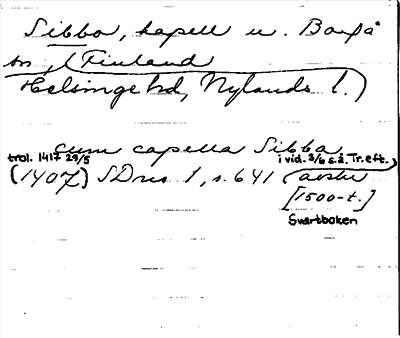 Sibbo, kapell u. Borgå
sn, (Finland
Helsinge hd, Nylands l.)
cum capella Sibba
trol. 1417 29/5 i vid. 3/6 s.å. Tr. eft.
(1407) SDns 1, s. 641 (avskr
[1500-t.]
Svartboken